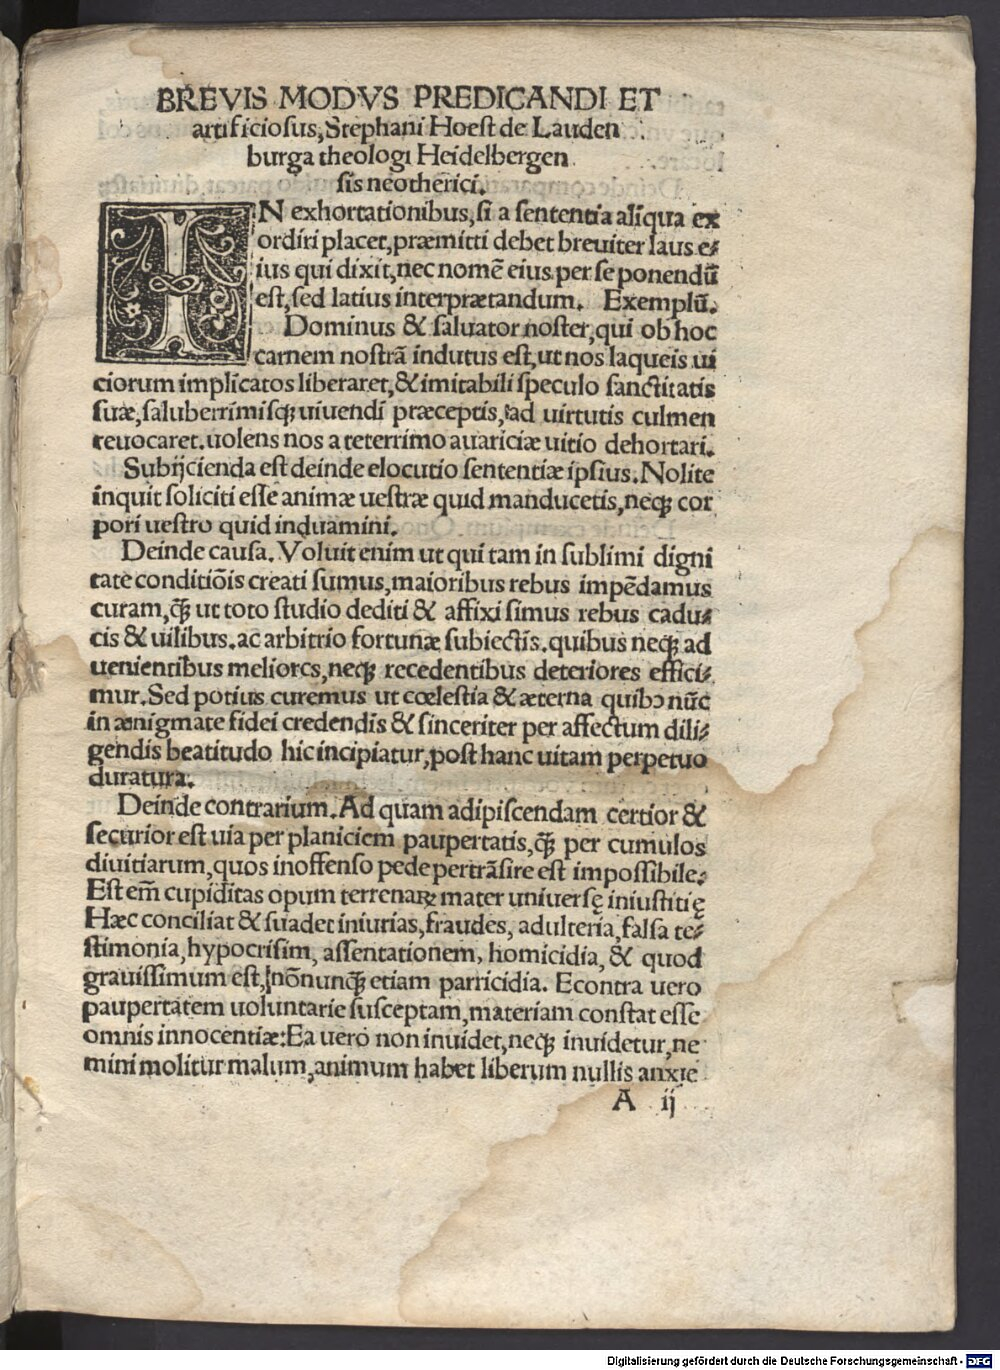 BREVIS MODVS PREDICANDI ET
artificiosus, Stephani Hoest de Lauden
burga theologi Heidelbergen
sis neotherici.
IN exhortationibus, si a sententia aliqua ex
ordiri placet, præmitti debet breuiter laus e⸗
ius qui dixit, nec nomē eius per se ponendū
est, sed latius interprætandum. Exemplū.
Dominus & saluator noster, qui ob hoc
carnem nostrā indutus est, ut nos laqueis ui
ciorum implicatos liberaret, & imitabili speculo sanctitatis
suæ, saluberrimisqꝫ uiuendi præceptis, ad uirtutis culmen
reuocaret. uolens nos a teterrimo auariciæ uitio dehortari.
Subijcienda est deinde elocutio sententiæ ipsius. Nolite
inquit soliciti esse animæ uestræ quid manducetis, neqꝫ cor
pori uestro quid induamini.
Deinde causa. Voluit enim ut qui tam in sublimi digni
tate conditiōis creati sumus, maioribus rebus impēdamus
curam, q̄ꝫ ut toto studio dediti & affixi simus rebus cadu⸗
cis & uilibus. ac arbitrio fortunæ subiectis. quibus neqꝫ ad
uenientibus meliores, neqꝫ recedentibus deteriores effici⸗
mur. Sed potius curemus ut cœlestia & æterna quibꝰ nūc
in ænigmate fidei credendis & sinceriter per affectum dili⸗
gendis beatitudo hic incipiatur, post hanc uitam perpetuo
duratura.
Deinde contrarium. Ad quam adipiscendam certior &
securior est uia per planiciem paupertatis, q̄ꝫ per cumulos
diuitiarum, quos inoffenso pede pertrāsire est impossibile.
Est em̄ cupiditas opum terrenaꝝ mater uniuersę iniustitię
Hæc conciliat & suadet iniurias, fraudes, adulteria, falsa te⸗
stimonia, hypocrisim, assentationem, homicidia, & quod
grauissimum est, nōnunqꝫ etiam parricidia. Econtra uero
paupertatem uoluntarie susceptam, materiam constat esse
omnis innocentiæ: Ea uero non inuidet, neqꝫ inuidetur, ne
mini molitur malum, animum habet liberum nullis anxie
A ij
Digitalisierung gefördert durch die Deutsche Forschungsgemeinschaft - DFG